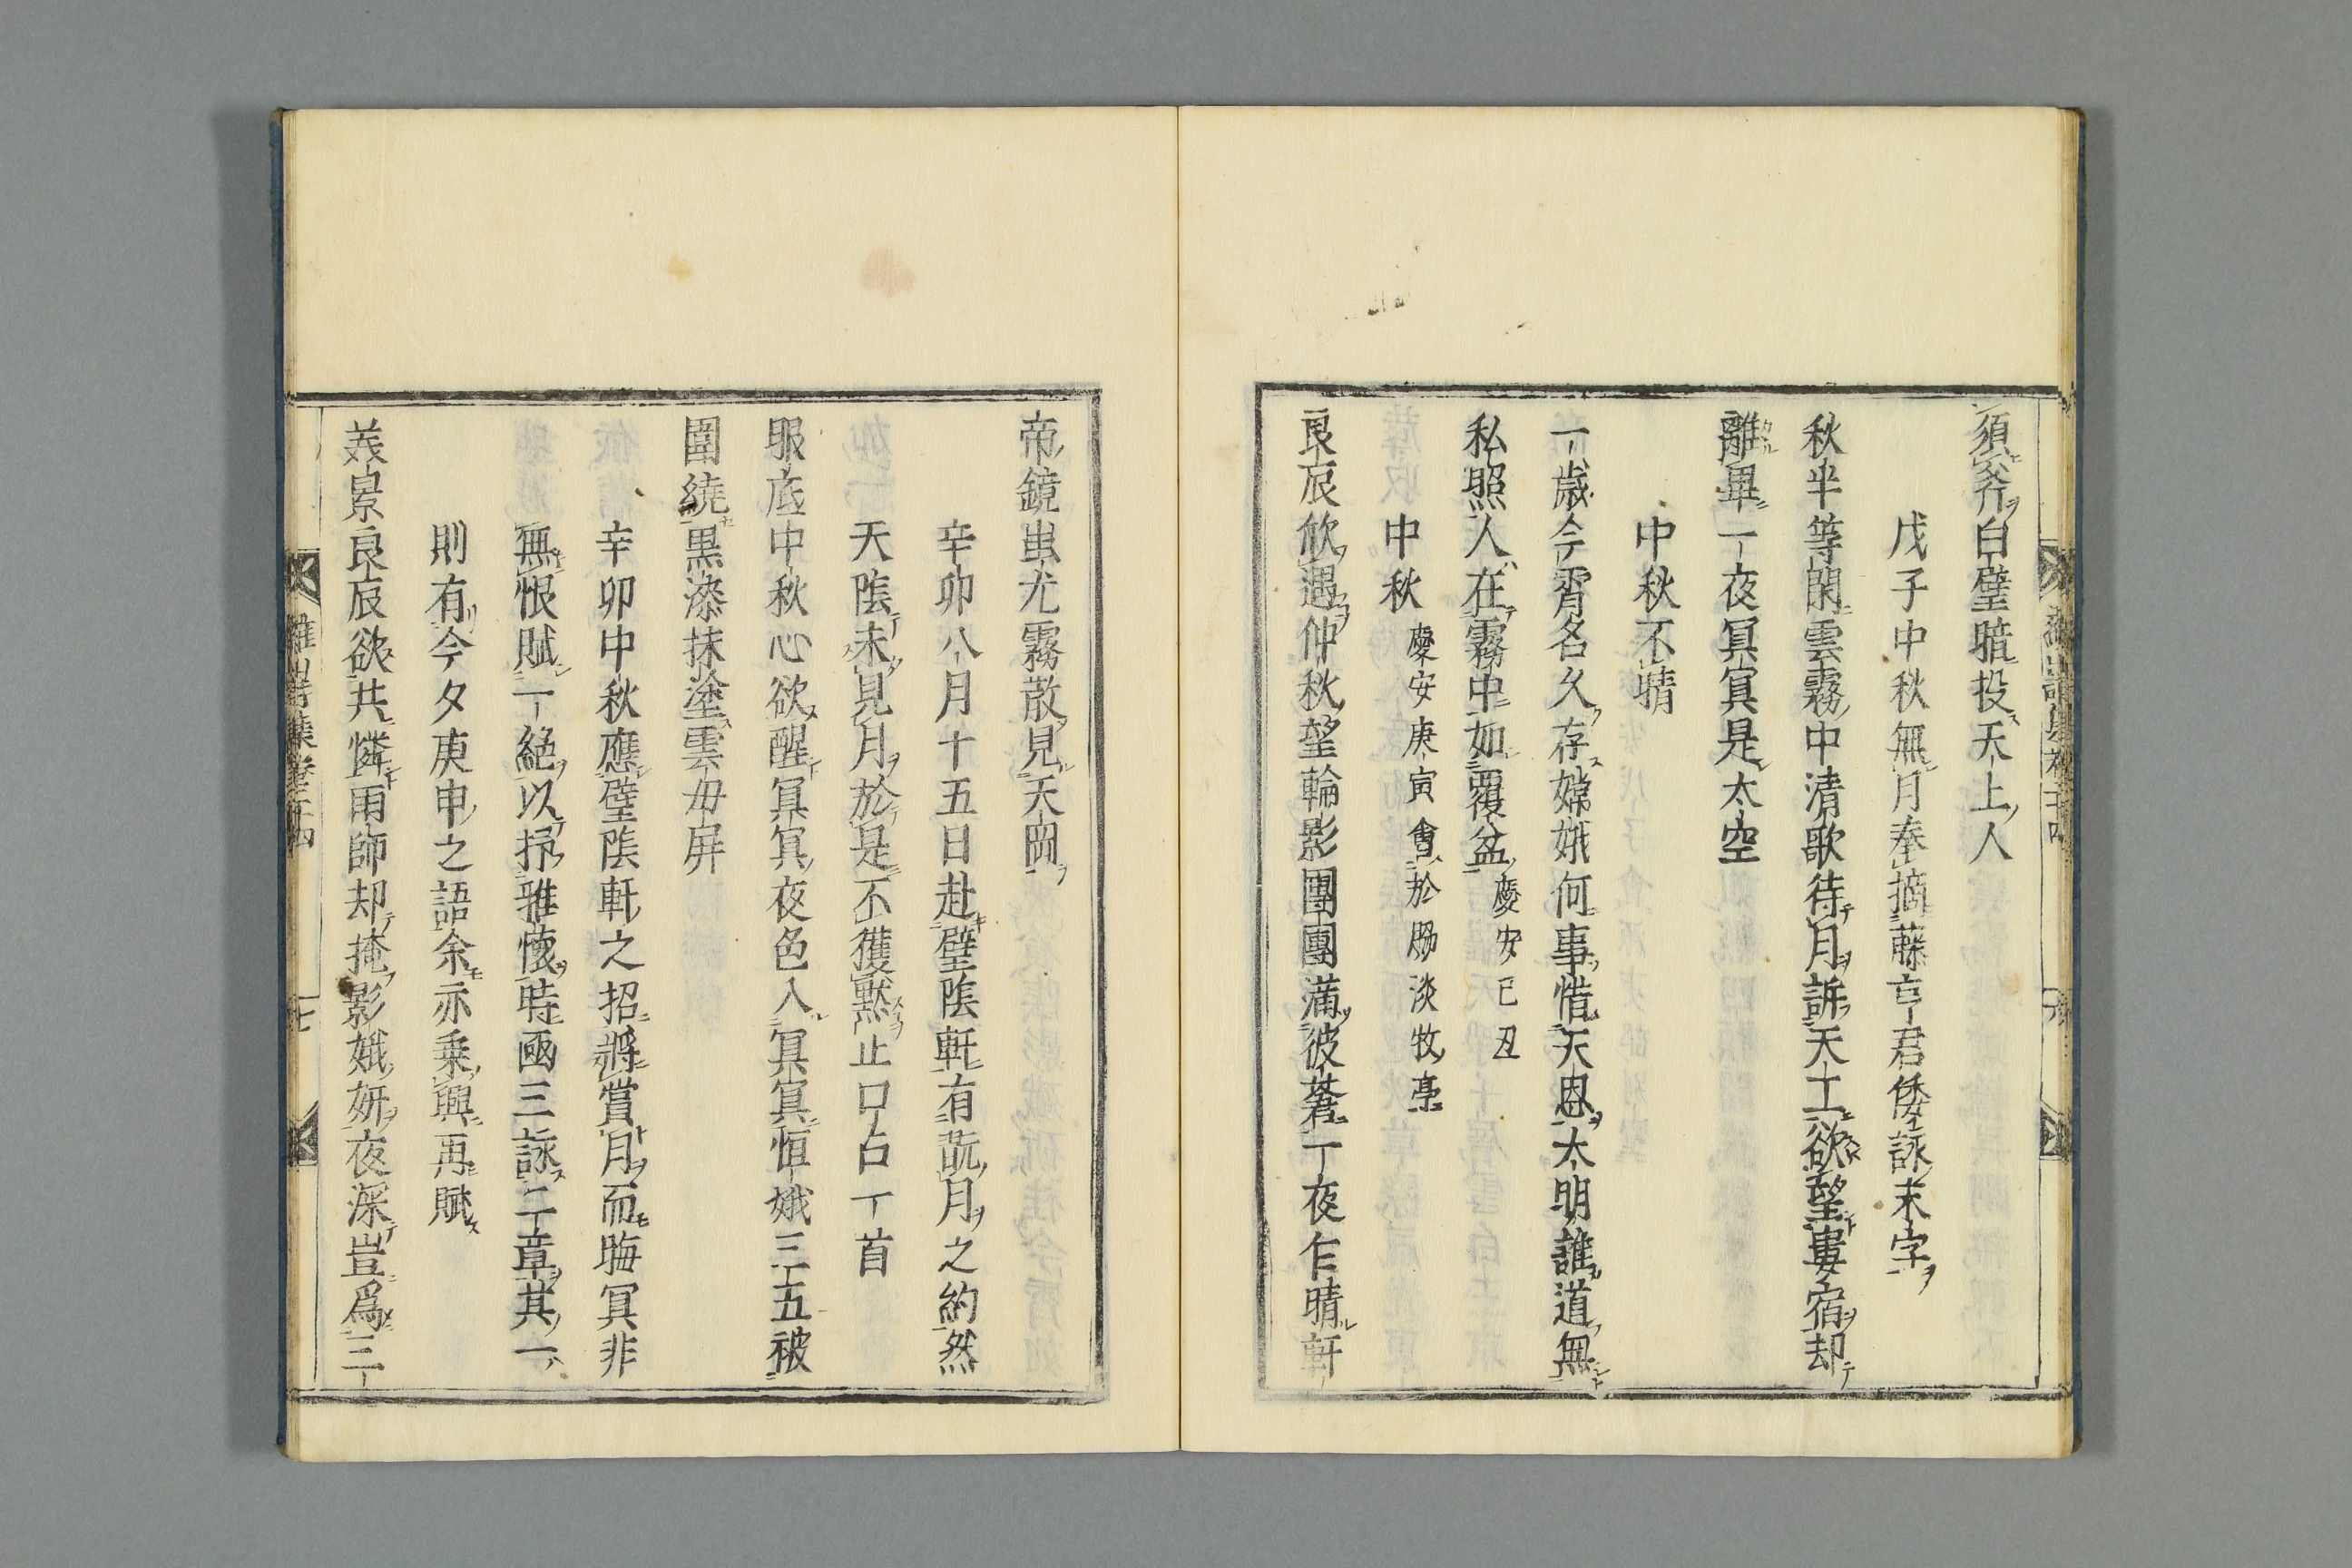 須斧白璧暗投天上人
戊子中秋無月奉摘藤亨君倭詠末字
秋半等閑雲霧中清歌待月訴天工欲望婁宿却
離畢一夜冥冥是太空
中秋不晴
一歲今宵名久存嫦娥何事惜天恩太明誰道無
私照人在霧中如覆盆 慶安己丑
中秋 慶安庚寅會於勝淡牧亭
良辰欣遇仲秋望輪影團團滿彼蒼一夜乍晴軒
帝鏡蚩尤霧散見天岡
辛卯八月十五日赴璧陰軒有翫月之約然
天陰未見月於是不獲黙止口占一首
眼底中秋心欲醒冥冥夜色入冥冥恒娥三五被
圍繞黒漆抹塗雲母屏
辛卯中秋應璧陰軒之招將賞月而晦冥非
無恨賦一絕以抒雅懷時國三詠二章其一
則有今夕庚申之語余亦乗興再賦
美景良辰欲共憐雨師却掩影娥妍夜深豈爲三